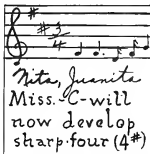 # # 3/4
Nita, Juanita
Miss-C-will
now develop
sharp-four (4#)